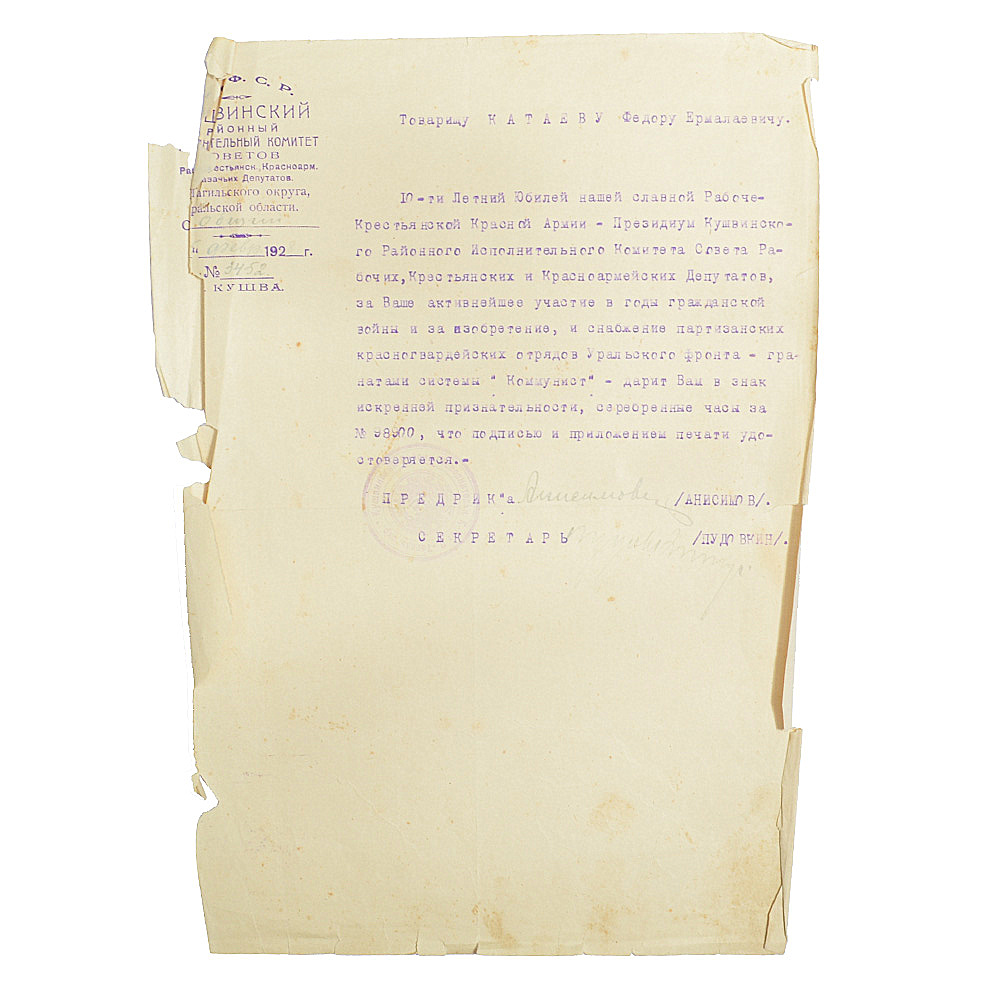 Ф. С. Р.
ШВИНСКИЙ
РАЙОННЫЙ
ИТЕЛЬНЫЙ КОМИТЕТ
СОВЕТОВ
Ра естьянск., Красноарм.
азачьих Депутатов.
Тагильского округа,
ральской области.
192 г.
№ 3452
КУШВА.
Товарищу КАТАЕВУ Федору Ермалаевичу.
10-ти Летний Юбилей нашей славной Рабоче-
Крестьянской Красной Армии - Президиум Кушвинско-
го Районного Исполнительного Комитета Совета Ра-
бочих, Крестьянских и Красноармейских Депутатов,
за Ваше активнейшее участие в годы гражданской
войны и за изобретение, и снабжение партизанских
красногвардейских отрядов Уральского фронта - гра-
натами системы " Коммунист" - дарит Вам в знак
искренней признательности, серебренные часы за
№ 98900, что подписью и приложением печати удо-
стоверяется.-
ПРЕДРИК"а Анисимов /АНИСИМОВ/.
СЕКРЕТАРЬ /ПУДОВКИН/.